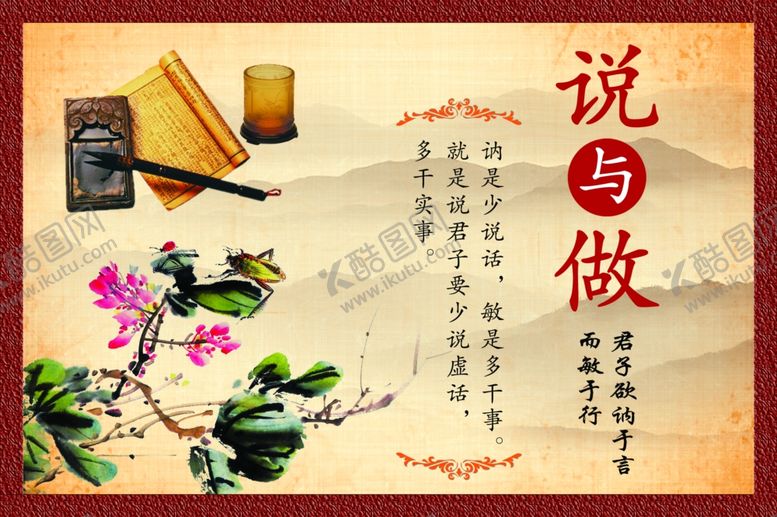 说与做
君子欲讷于言
而敏于行
讷是少说话，敏是多干事。
就是说君子要少说虚话，
多干实事。
酷图网
www.ikutu.com
酷图网
www.ikutu.com
酷图网
www.ikutu.com